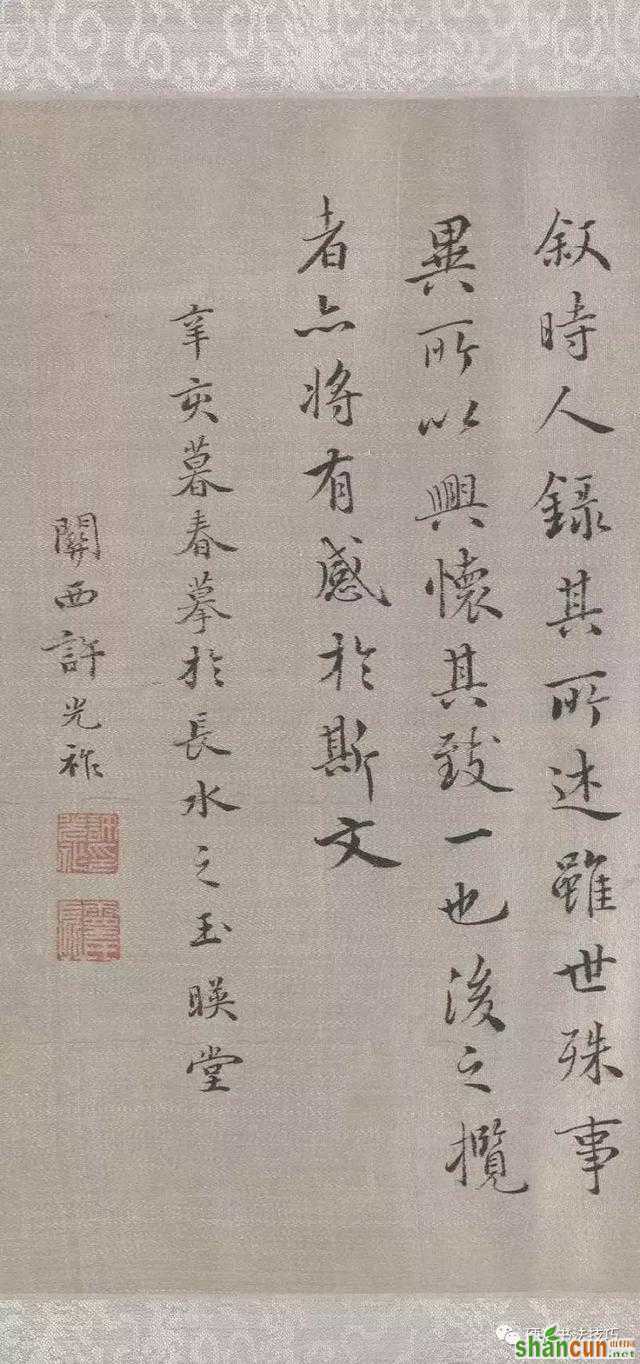 叙時人録其所述雖世殊事
異所以興懷其致一也後之攬
者亦將有感於斯文
辛亥暮春摹於長水之玉暎堂
關西許光祚
shancun
.net